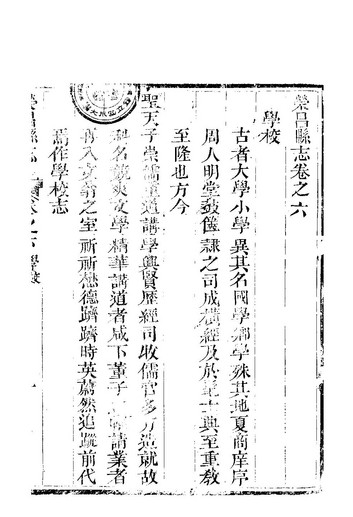 榮昌縣志卷之六
學校
古者大學小學異其名國學鄉學殊其地夏商庠序
周人明堂鼓篋隸之司成橫經及於
典至重敎
至隆也方今
聖天子崇儒重道講學興賢歷經司牧儒官多方造就故
科名
文學精華講道者咸下董子
請業者
再入文翁之室祈祈懋德躋躋時英蔚然追蹤前代
焉作學校志
榮昌縣志
學校